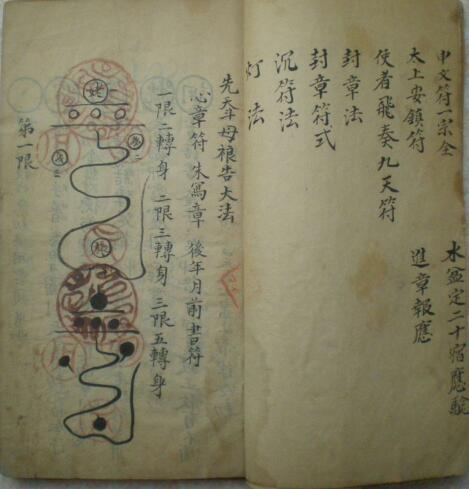 申文符一宗全
太上安鎮符
使者飛奏九天符
封章法
封章符式
沉符法
灯法
水盆定二十宿應驗
進章報應
先天斗母禳告大法
心章符 朱寫章 後年月前書符
一限二轉身 二限三轉身 三限五轉身
第一限